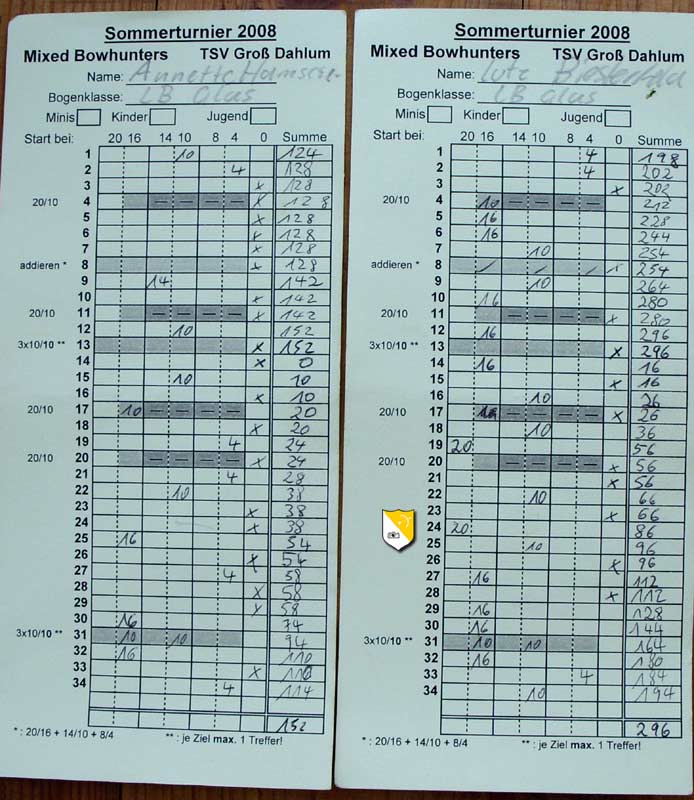 Sommerturnier 2008
Mixed Bowhunters TSV Groß Dahlum
Name: Annette
Bogenklasse: LB Glas
Minis Kinder Jugend
Start bei: 20 16 14 10 8 4 0 Summe
1 10 124
2 4 128
3 x 128
20/10 4 — — — — x 128
5 x 128
6 x 128
7 x 128
addieren * 8 x 128
9 14 142
10 x 142
20/10 11 — — — — x 142
12 10 152
3x10/10 ** 13 x 152
14 x 0
15 10 10
16 x 10
20/10 17 10 — — — — 20
18 x 20
19 4 24
20/10 20 — — — — x 24
21 4 28
22 10 38
23 x 38
24 x 38
25 16 54
26 x 54
27 4 58
28 x 58
29 x 58
30 16 74
3x10/10 ** 31 10 10 94
32 16 110
33 x 110
34 4 114
152
* : 20/16 + 14/10 + 8/4 ** : je Ziel max. 1 Treffer!
Sommerturnier 2008
Mixed Bowhunters TSV Groß Dahlum
Name: Lutz
Bogenklasse: LB Glas
Minis Kinder Jugend
Start bei: 20 16 14 10 8 4 0 Summe
1 4 198
2 4 202
3 x 202
20/10 4 10 — — — — 212
5 16 228
6 16 244
7 10 254
addieren * 8 / / / x 254
9 10 264
10 16 280
20/10 11 — — — — x 280
12 16 296
3x10/10 ** 13 x 296
14 16 16
15 x 16
16 10 26
20/10 17 — — — — x 26
18 10 36
19 20 56
20/10 20 — — — — x 56
21 x 56
22 10 66
23 x 66
24 20 86
25 10 96
26 x 96
27 16 112
28 x 112
29 16 128
30 16 144
3x10/10 ** 31 10 10 164
32 16 180
33 4 184
34 10 194
296
* : 20/16 + 14/10 + 8/4 ** : je Ziel max. 1 Treffer!